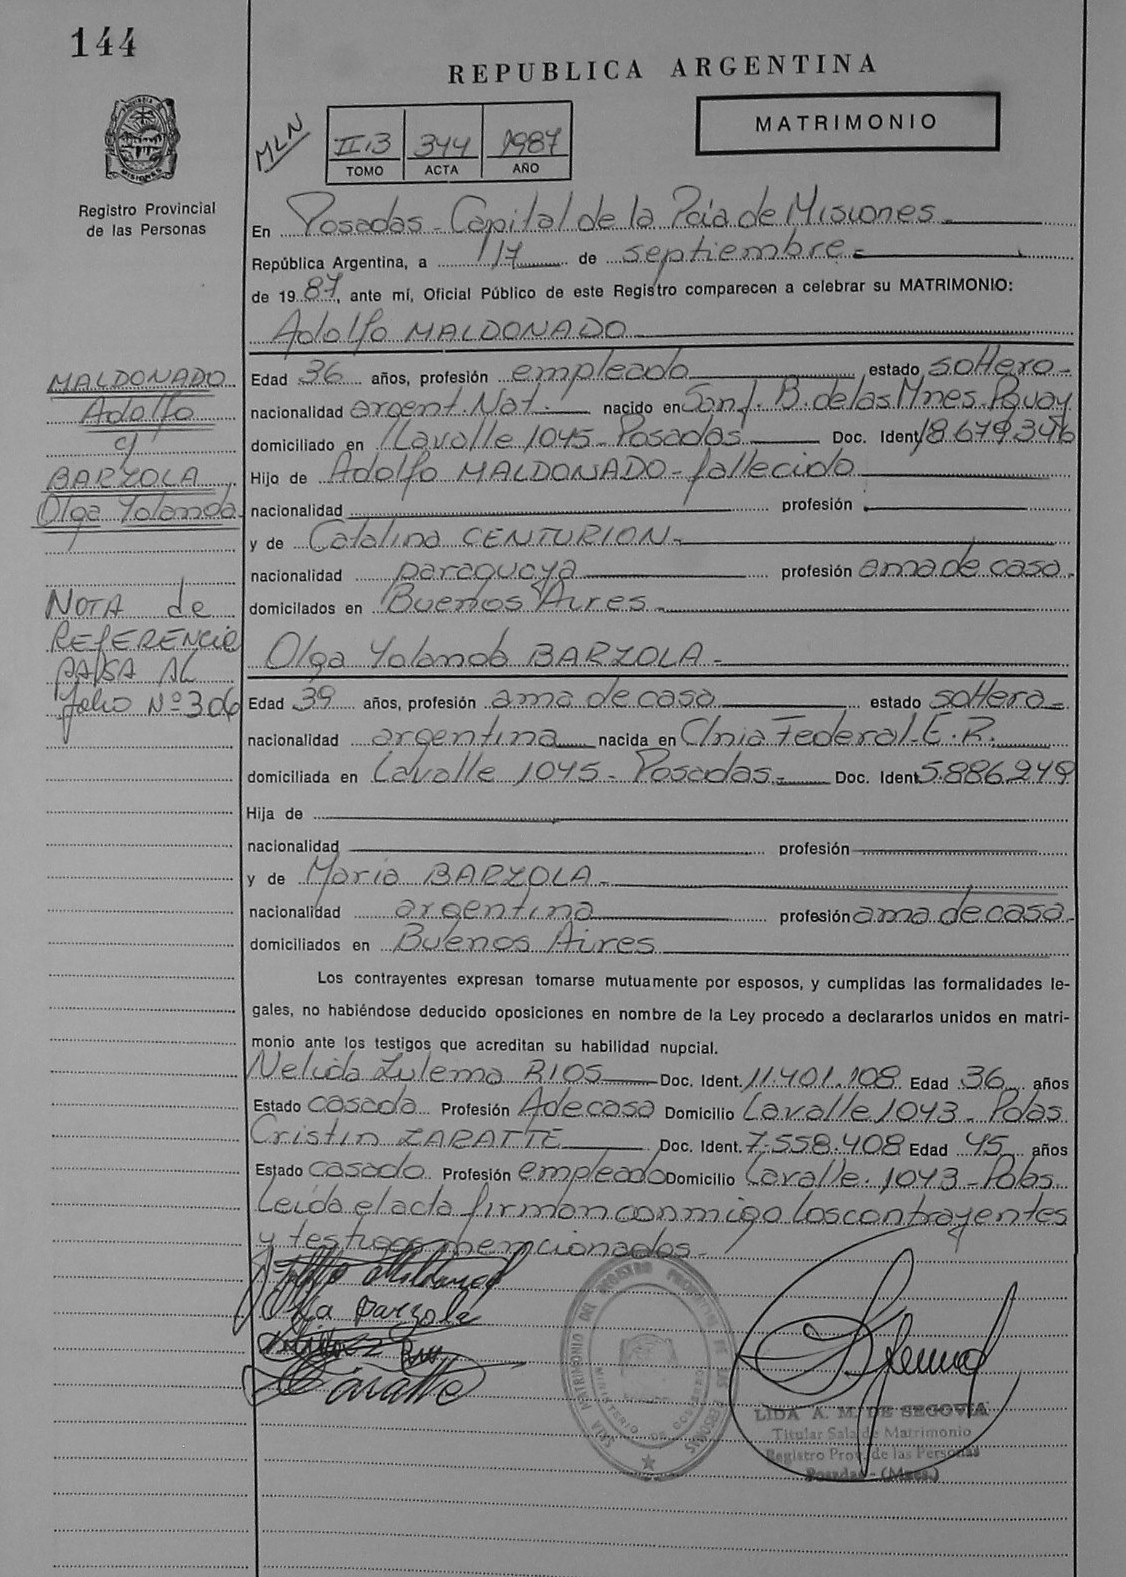 144
REPUBLICA ARGENTINA
MLN
II.13 344 1987
TOMO ACTA AÑO
MATRIMONIO
Registro Provincial
de las Personas
En Posadas - Capital de la Pcia de Misiones -
República Argentina, a 17 de septiembre -
de 1987, ante mí, Oficial Público de este Registro comparecen a celebrar su MATRIMONIO:
Adolfo MALDONADO
MALDONADO
Adolfo
c/
BARZOLA
Olga Yolanda
Edad 36 años, profesión empleado estado soltero -
nacionalidad argent. Nat. nacido en San J. B. de las Mnes. Paguay
domiciliado en Lavalle 1045 - Posadas Doc. Ident. 18.679.346
Hijo de Adolfo MALDONADO - fallecido
nacionalidad profesión
y de Catalina CENTURION -
nacionalidad paraguaya profesión ama de casa -
domicilados en Buenos Aires -
NOTA de
REFERENCIA
PASA AL
folio Nº 306
Olga Yolanda BARZOLA -
Edad 39 años, profesión ama de casa estado soltera -
nacionalidad argentina nacida en Clnia Federal - E. R.
domiciliada en Lavalle 1045 - Posadas - Doc. Ident. 5.886.249
Hija de
nacionalidad profesión
y de Maria BARZOLA -
nacionalidad argentina profesión ama de casa -
domiciliados en Buenos Aires
Los contrayentes expresan tomarse mutuamente por esposos, y cumplidas las formalidades le-
gales, no habiéndose deducido oposiciones en nombre de la Ley procedo a declararlos unidos en matri-
monio ante los testigos que acreditan su habilidad nupcial.
Nelida Zulema RIOS Doc. Ident. 11.401.108 Edad 36 años
Estado casada Profesión A de casa Domicilio Lavalle 1043 - Pdas
Cristin ZARATTE Doc. Ident. 7.558.408 Edad 45 años
Estado casado Profesión empleado Domicilio Lavalle 1043 - Pdas
Leida el acta firman conmigo los contrayentes
y testigos mencionados -
Olga Barzola
Zaratte
LIDA A. M. DE SEGOVIA
Titular Sala de Matrimonio
Registro Prov. de las Personas
Posadas - (Mnes.)